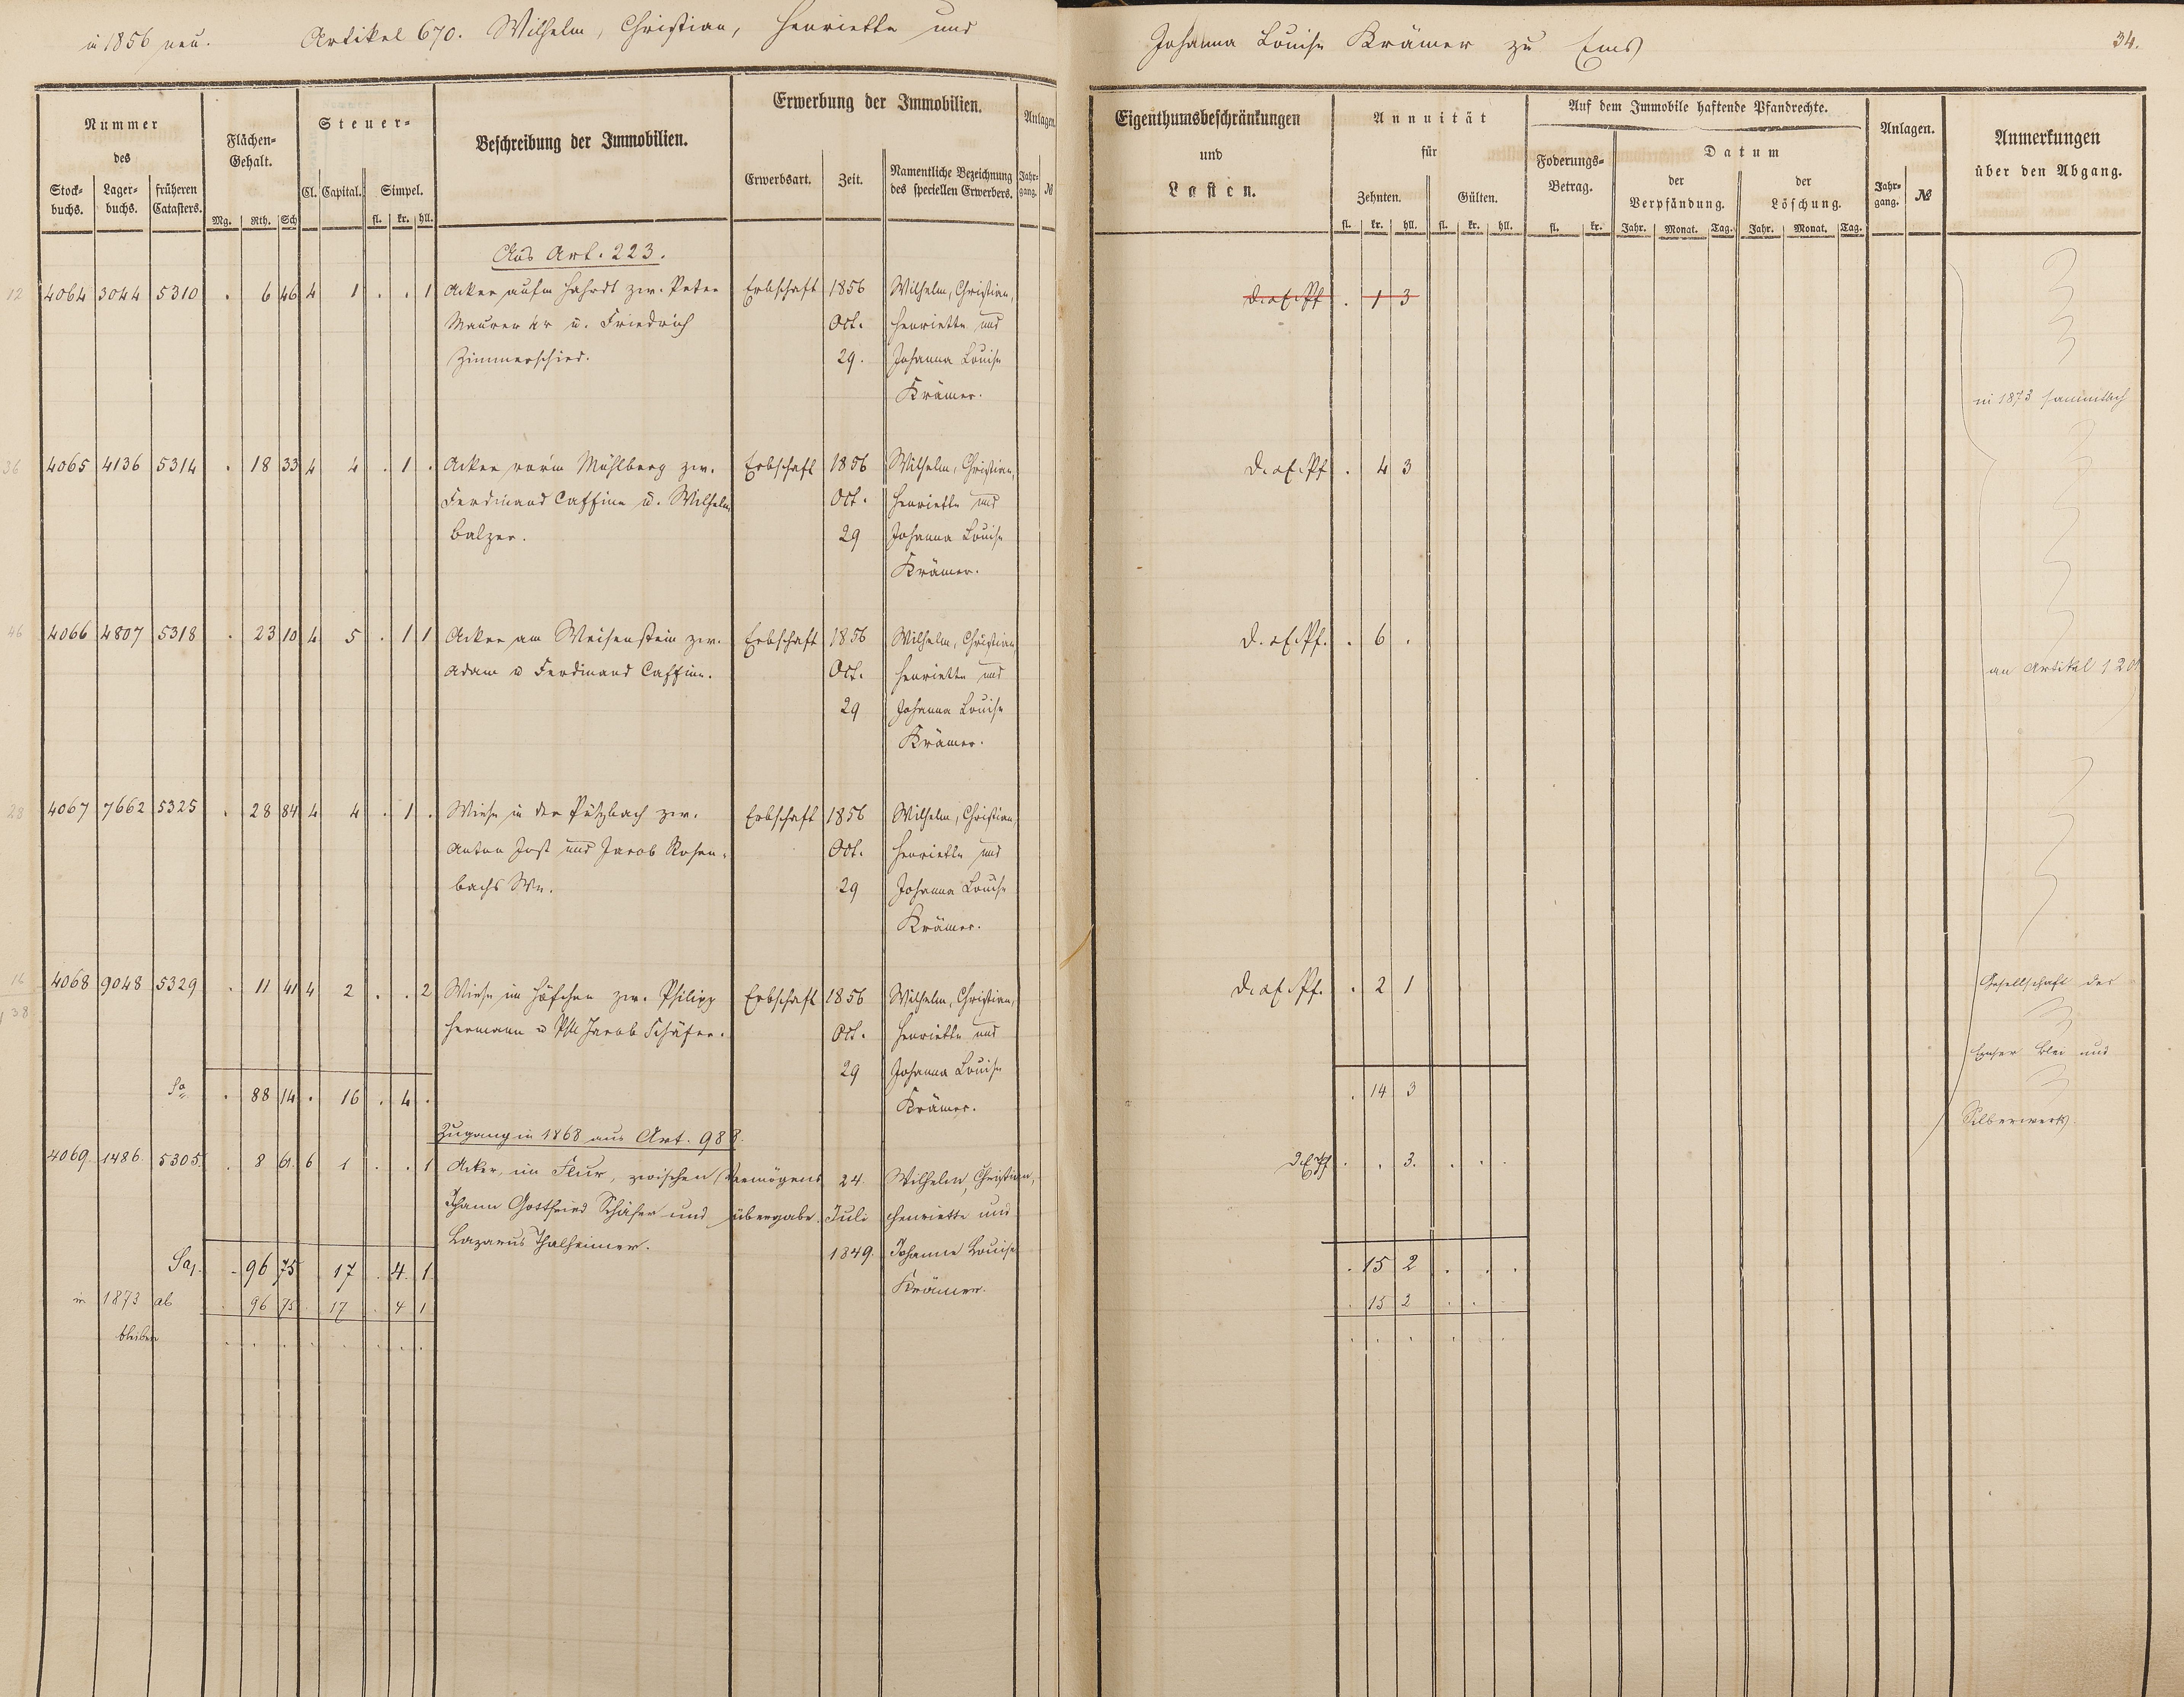 in 1856 neu. Artikel 670. Wilhelm, Christian, Henriette und Johanna Louise Krämer zu Ems 34.
Nummer
des
Stock-
buchs.
Lager-
buchs.
früheren
Catasters.
Flächen-
Gehalt.
Mg. Rth. Sch
Steuer-
Cl. Capital. Simpel.
fl. kr. hll.
Beschreibung der Immobilien.
Erwerbung der Immobilien.
Erwerbsart. Zeit.
Namentliche Bezeichnung
des speciellen Erwerbers.
Anlagen.
Jahr-
gang. №
Eigenthumsbeschränkungen
und
Lasten.
Annuität
für
Zehnten. Gülten.
fl. kr. hll. fl. kr. hll.
Auf dem Immobile haftende Pfandrechte.
Foderungs-
Betrag.
fl. kr.
Datum
der
Verpfändung.
Jahr. Monat. Tag.
der
Löschung.
Jahr. Monat. Tag.
Anlagen.
Jahr-
gang. №
Anmerkungen
über den Abgang.
Aus Art. 223.
12 4064 3044 5310 . 6 46 4 1 . . 1 Acker aufm Hahrdt zw. Peter Erbschaft 1856 Wilhelm, Christian, . 1 3
Maurer u. Friedrich Oct. Henriette und
Zimmerschied. 29. Johanna Louise
Krämer.
in 1873 sämmtlich
36 4065 4136 5314 . 18 33 4 4 . 1 . Acker vorm Mühlberg zw. Erbschaft 1856 Wilhelm, Christian, . 4 3
Ferdinand Caffine u. Wilhelm Oct. Henriette und
Balzer. 29 Johanna Louise
Krämer.
46 4066 4807 5318 . 23 10 4 5 . 1 1 Acker am Weisenstein zw. Erbschaft 1856 Wilhelm, Christian . 6 .
Adam u Ferdinand Caffine. Oct. Henriette und
29 Johanna Louise
Krämer.
an Artikel
28 4067 7662 5325 . 28 84 4 4 . 1 . Wiese in der Pützbach zw. Erbschaft 1856 Wilhelm, Christian,
Anton Jost und Jacob Rosen- Oct. Henriette und
bachs We. 29 Johanna Louise
Krämer.
16 4068 9048 5329 . 11 41 4 2 . . 2 Wiese im Höfchen zw. Philipp Erbschaft 1856 Wilhelm, Christian, . 2 1 Gesellschaft des
138
Hermann u Phil Jacob Schäfer. Oct. Henriette und
29 Johanna Louise Emser Blei und
Sa . 88 14 . 16 . 4 . Krämer. . 14 3
Silberwerks
Zugang in 1868 aus Art. 988.
4069. 1486. 5305. . 8 61 6 1 . . 1 Acker, im Flur, zwischen Vermögens 24. Wilhelm, Christian, . . 3. . . .
Johann Gottfried Schäfer und übergabe. Juli Henriette und
Lazarus Thalheimer. 1849. Johanne Louise
Krämer.
Sa, . 96 75 17 . 4. 1 . 15 2 . . .
in 1873 ab . 96 75 . 17 . 4 1 . 15 2 . .
bleiben . . . . . . . . . . . . .